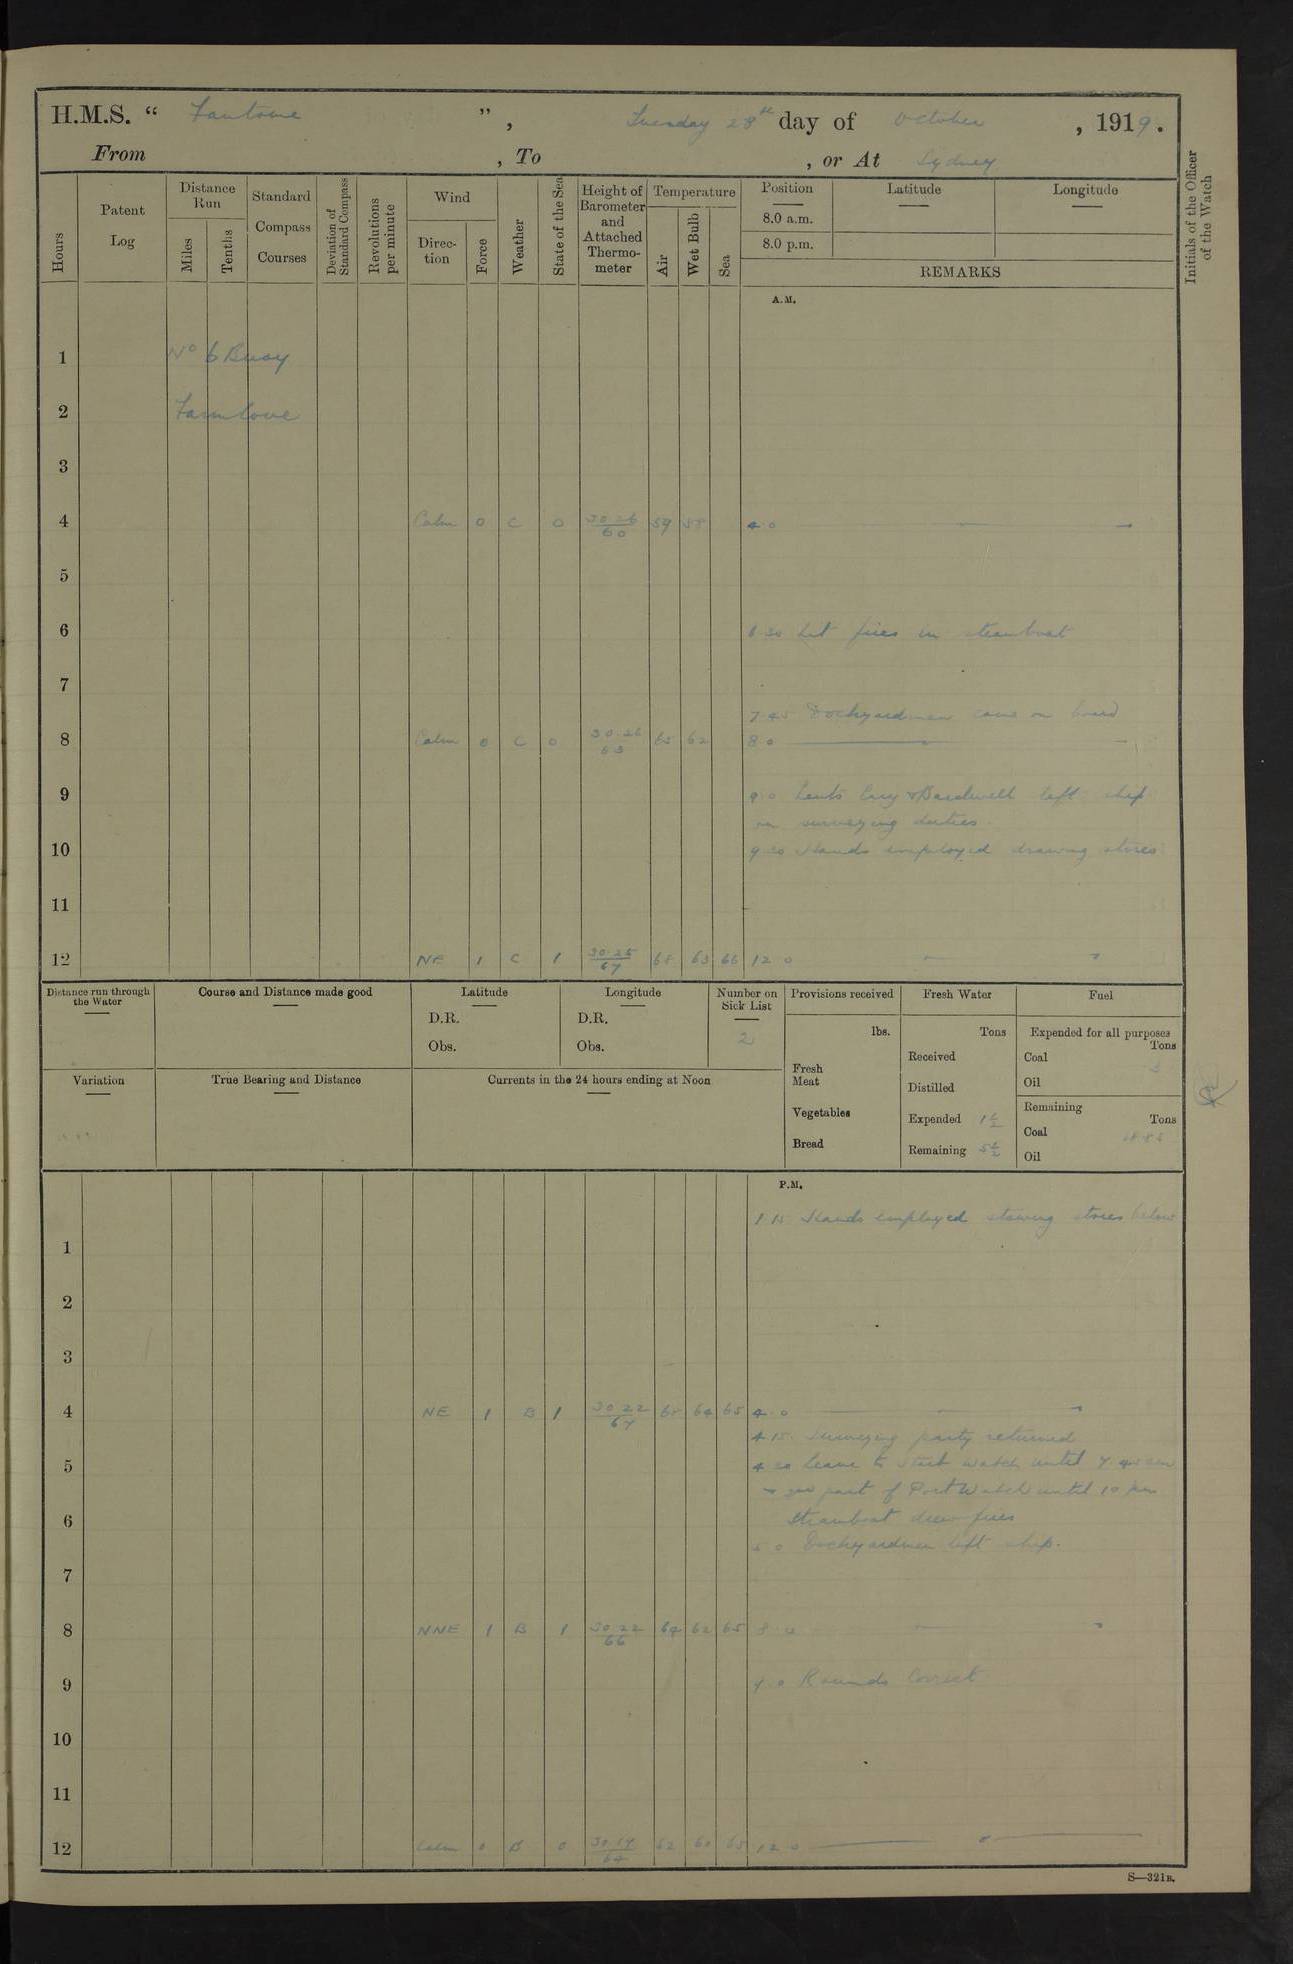 H.M.S. “ Fantome ”, Tuesday 28th day of October, 1919.
From , To , or At Sydney
Hours
Patent Log
Distance Run
Miles
Tenths
Standard Compass Courses
Deviation of Standard Compass
Revolutions per minute
Wind
Direc-tion
Force
Weather
State of the Sea
Height of Barometer and Attached Thermo-meter
Temperature
Air
Wet Bulb
Sea
Position
8.0 a.m.
8.0 p.m.
Latitude
Longitude
REMARKS
Initials of the Officer of the Watch
A.M.
1 No 6 Buoy
2 Farmcove
3
4 Calm 0 C 0 30.26/60 59 58 4.0
5
6 6.30 Lit fires in steamboat
7
7.45 Dockyardmen came on board
8 Calm 0 C 0 30.26 63 65 62 8.0
9 9.0 Lieuts & Bardwell left ship
on surveying duties.
10 9.30 Hands employed drawing stores
11
12 NE 1 C 1 30.25/67 68 63 66 12 0
Distance run through the Water
Course and Distance made good
Latitude
D.R.
Obs.
Longitude
D.R.
Obs.
Number on Sick List
2
Provisions received
lbs.
Fresh Meat
Vegetables
Bread
Fresh Water
Tons
Received
Distilled
Expended 1½
Remaining 5½
Fuel
Expended for all purposes
Tons
Coal
Oil
Remaining
Tons
Coal
Oil
Variation
True Bearing and Distance
Currents in the 24 hours ending at Noon
P.M.
1.15 Hands employed stowing stores below
1
2
3
4 NE 1 B 1 30.22/67 68 64 65 4.0
4.15. Surveying party returned
5 4.30 Leave to Start watch until
part of Port Watch until 10 pm
6 Steamboat drew fires
5 0 Dockyardmen left ship.
7
8 NNE 1 B 1 30.22/66 64 62 65 8.0
9 9.0 Rounds Correct
10
11
12 Calm 0 B 0 30.19/64 62 60 65 12 0
S—321B.